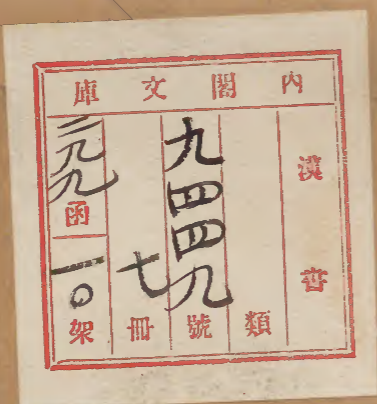 內閣文庫
漢書
類
九四四九號
七冊
二九九函
一〇架